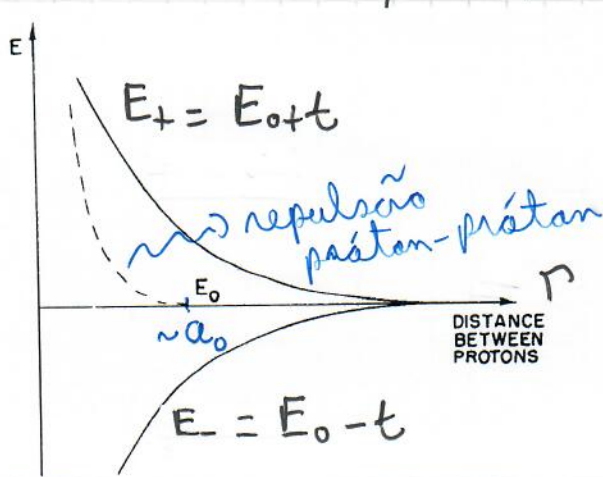 E
E₊ = E₀+t
repulsão
próton-próton
E₀
~a₀
r
DISTANCE
BETWEEN
PROTONS
E₋ = E₀-t